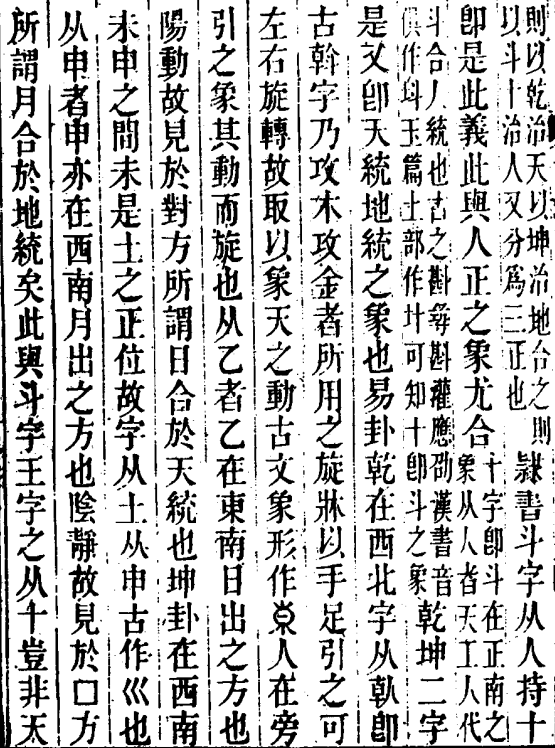 則以乾治天以坤治地合之則
以斗十治人又分爲三正也
隸書斗字从人持十
即是此義此與人正之象尤合
十字即斗在正南之
象从人者天工人代
斗合人統也古之斟彝斟灌應劭漢書音
俱作玉篇土部作可知十即斗之象
乾坤二字
是又即天統地統之象也易卦乾在西北字从倝即
古斡字乃攻木攻金者所用之旋牀以手足引之可
左右旋轉故取以象天之動古文象形作人在旁
引之象其動而旋也从乙者乙在東南日出之方也
陽動故見於對方所謂日合於天統也坤卦在西南
未申之間未是土之正位故字从土从申古作巛也
从申者申亦在西南月出之方也陰靜故見於囗方
所謂月合於地統矣此與斗字王字之从十豈非天